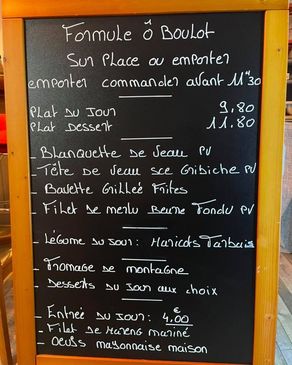 Formule Ô Boulot
Sur Place ou emporter
emporter commander avant 11h30
Plat du Jour 9.80
Plat Dessert 11.80
_ Blanquette de Veau PV
_ Tête de Veau sce Gribiche PV
_ Bavette Grillée Frites
_ Filet de merlu Beurre Fondu PV
_ Légume du Jour: Haricots Tarbais
_ Fromage de montagne
_ Desserts du Jour aux choix
_ Entrée du Jour: 4,00 €
_ Filet de Hareng mariné
_ Oeufs mayonnaise maison